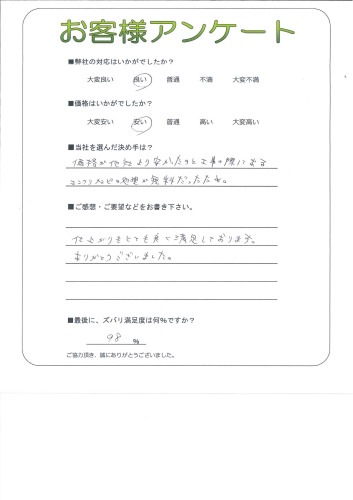 お客様アンケート
■弊社の対応はいかがでしたか？
大変良い 良い 普通 不満 大変不満
■価格はいかがでしたか？
大変安い 安い 普通 高い 大変高い
■当社を選んだ決め手は？
価格が他社より安かったのと工事の際にある
コンクリなどの処理が無料だったため。
■ご感想・ご要望などをお書き下さい。
仕上がりもとても良く満足しております。
ありがとうございました。
■最後に、ズバリ満足度は何％ですか？
98 %
ご協力頂き、誠にありがとうございました。